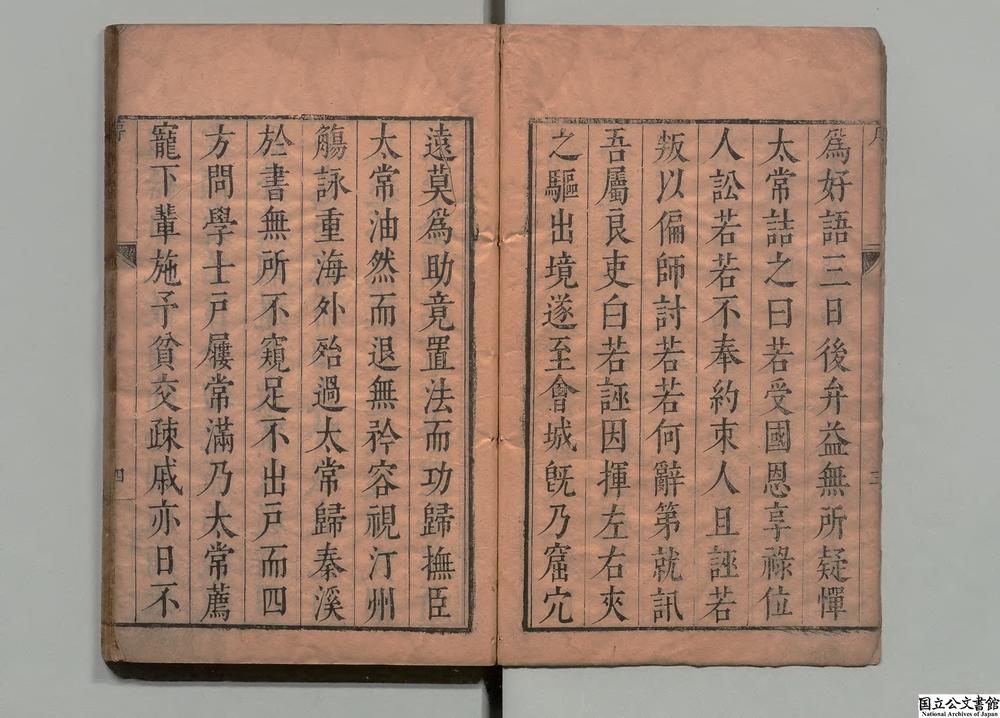 爲好語三日後弁益無所疑憚
太常詰之曰若受國恩享祿位
人訟若若不奉約束人且誣若
叛以偏師討若若何辭第就訊
吾屬良吏白若誣因揮左右夾
之驅出境遂至會城旣乃窟穴
三
遠莫爲助竟置法而功歸撫臣
太常油然而退無衿容視汀州
觴詠重海外殆過太常歸秦溪
於書無所不窺足不出戶而四
方問學士戶屨常滿乃太常薦
寵下輩施予貧交疎戚亦日不
四
国立公文書館
National Archives of Japan